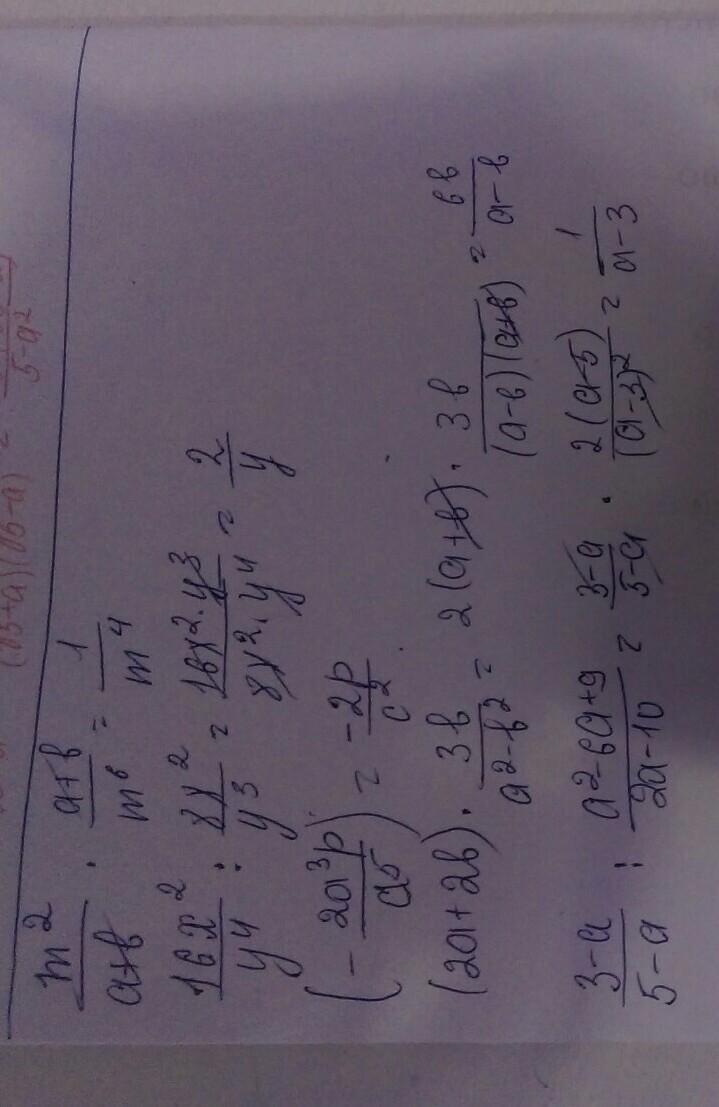 (a5+a)(a5-a) = 5-a²
m²/(a+b) · (a+b)/m⁶ = 1/m⁴
16x²/y⁴ : 8x²/y³ = 16x²·y³/8x²·y⁴ = 2/y
(-2a³p/a5) = -2p/c²
(2a+2b) · 3b/(a²-b²) = 2(a+b) · 3b/(a-b)(a+b) = 6b/(a-b)
(3-a)/(5-a) : (a²-6a+9)/(2a-10) = (3-a)/(5-a) · 2(a-5)/(a-3)² = 1/(a-3)